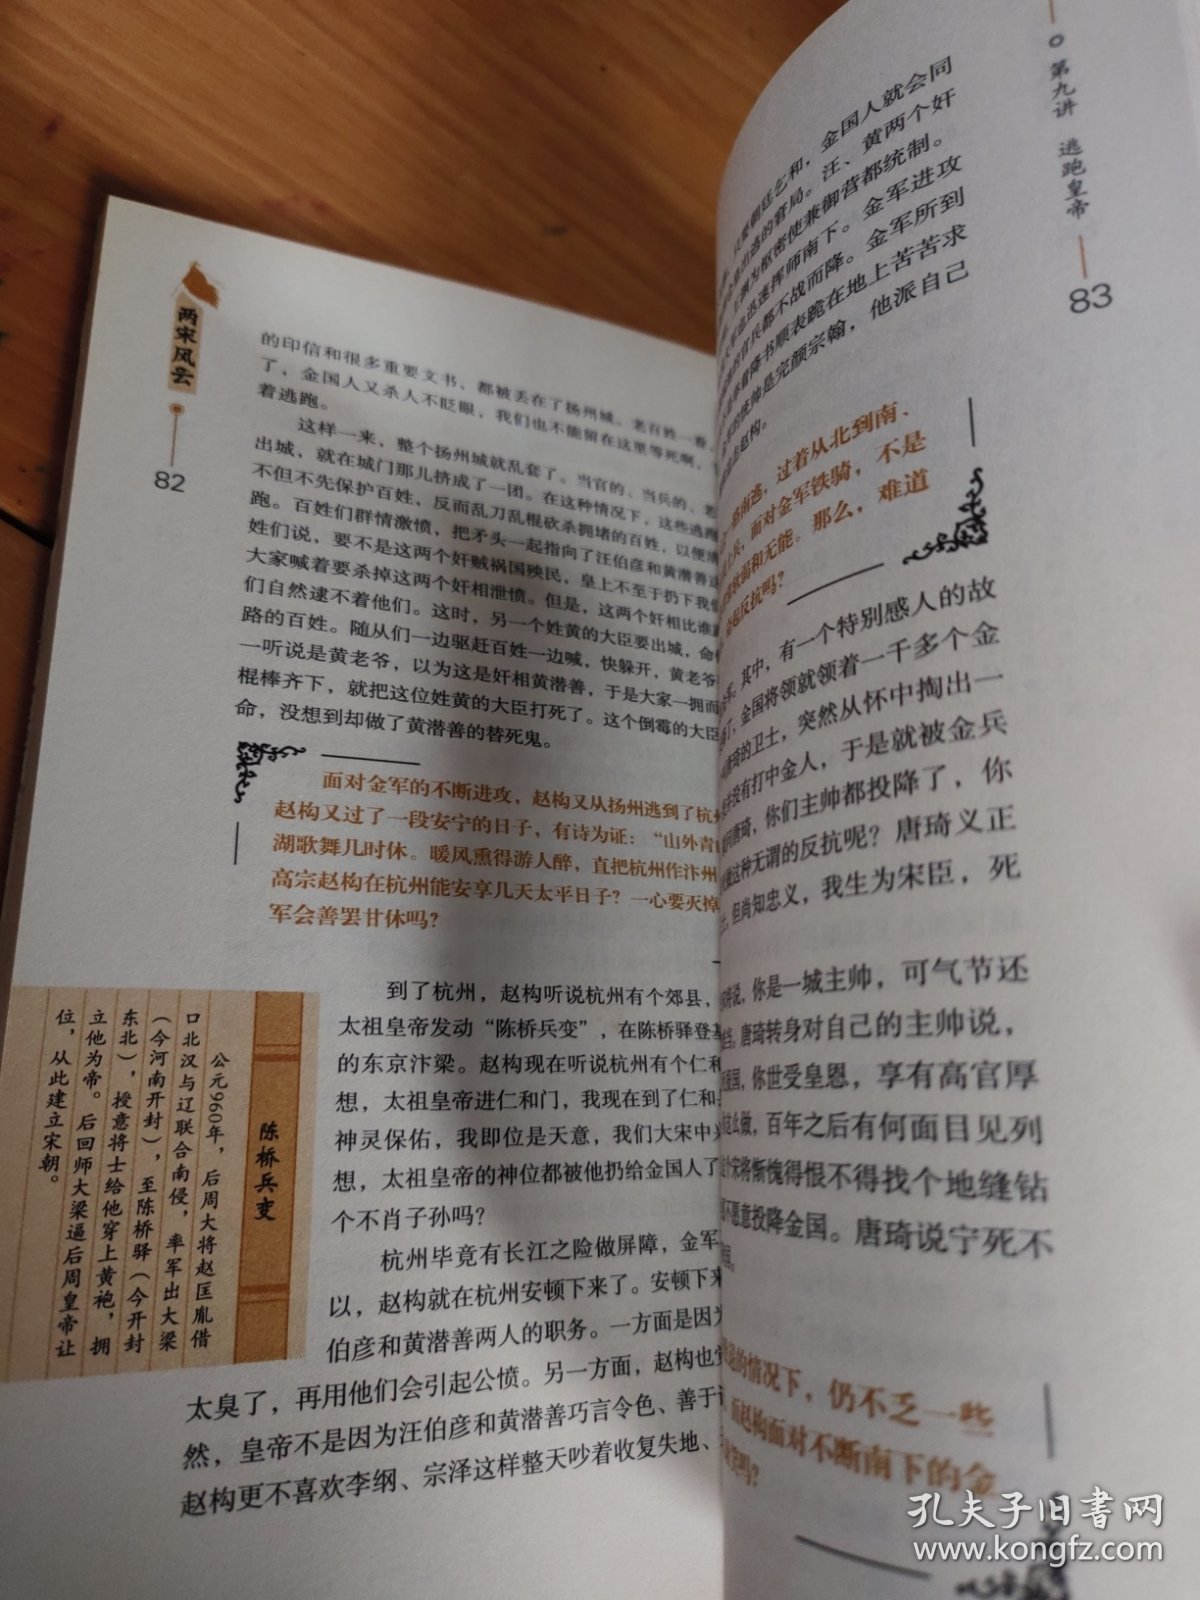 两宋风云
82
的印信和很多重要文书，都被丢在了扬州城。老百姓一看，
了，金国人又杀人不眨眼，我们也不能留在这里等死啊，
着逃跑。
这样一来，整个扬州城就乱套了。当官的、当兵的、老
出城，就在城门那儿挤成了一团。在这种情况下，这些逃跑
不但不先保护百姓，反而乱刀乱棍砍杀拥堵的百姓，以便清
跑。百姓们群情激愤，把矛头一起指向了汪伯彦和黄潜善这
姓们说，要不是这两个奸贼祸国殃民，皇上不至于扔下我们
大家喊着要杀掉这两个奸相泄愤。但是，这两个奸相比谁
们自然逮不着他们。这时，另一个姓黄的大臣要出城，命
路的百姓。随从们一边驱赶百姓一边喊，快躲开，黄老爷
一听说是黄老爷，以为这是奸相黄潜善，于是大家一拥而
棍棒齐下，就把这位姓黄的大臣打死了。这个倒霉的大臣
命，没想到却做了黄潜善的替死鬼。
面对金军的不断进攻，赵构又从扬州逃到了杭州
赵构又过了一段安宁的日子，有诗为证：“山外青
湖歌舞几时休。暖风熏得游人醉，直把杭州作汴州
高宗赵构在杭州能安享几天太平日子？一心要灭掉
军会善罢甘休吗？
到了杭州，赵构听说杭州有个郊县，
太祖皇帝发动“陈桥兵变”，在陈桥驿登基
的东京汴梁。赵构现在听说杭州有个仁和
想，太祖皇帝进仁和门，我现在到了仁和
神灵保佑，我即位是天意，我们大宋中兴
想，太祖皇帝的神位都被他扔给金国人了
个不肖子孙吗？
杭州毕竟有长江之险做屏障，金军
以，赵构就在杭州安顿下来了。安顿下来
伯彦和黄潜善两人的职务。一方面是因为
太臭了，再用他们会引起公愤。另一方面，赵构也觉
然，皇帝不是因为汪伯彦和黄潜善巧言令色、善于
赵构更不喜欢李纲、宗泽这样整天吵着收复失地、
陈桥兵变
公元960年，后周大将赵匡胤借
口北汉与辽联合南侵，率军出大梁
（今河南开封），至陈桥驿（今开封
东北），授意将士给他穿上黄袍，拥
立他为帝。后回师大梁逼后周皇帝让
位，从此建立宋朝。
第九讲 逃跑皇帝
83
朝廷乞和，金国人就会同
出逃的窘局。汪、黄两个奸
为枢密使兼御营都统制。
迅速挥师南下。金军进攻
的官兵都不战而降。金军所到
着降书顺表跪在地上苦苦求
的统帅是完颜宗翰，他派自己
赵构。
南逃，过着从北到南、
兵，面对金军铁骑，不是
软弱和无能。那么，难道
起反抗吗？
其中，有一个特别感人的故
了，金国将领就领着一千多个金
唐琦的卫士，突然从怀中掏出一
没有打中金人，于是就被金兵
问唐琦，你们主帅都投降了，你
做这种无谓的反抗呢？唐琦义正
但尚知忠义，我生为宋臣，死
说，你是一城主帅，可气节还
唐琦转身对自己的主帅说，
国，你世受皇恩，享有高官厚
这么做，百年之后有何面目见列
个宋将惭愧得恨不得找个地缝钻
不愿意投降金国。唐琦说宁死不
的情况下，仍不乏一些
而赵构面对不断南下的金
吗？
孔夫子旧书网
www.kongfz.com